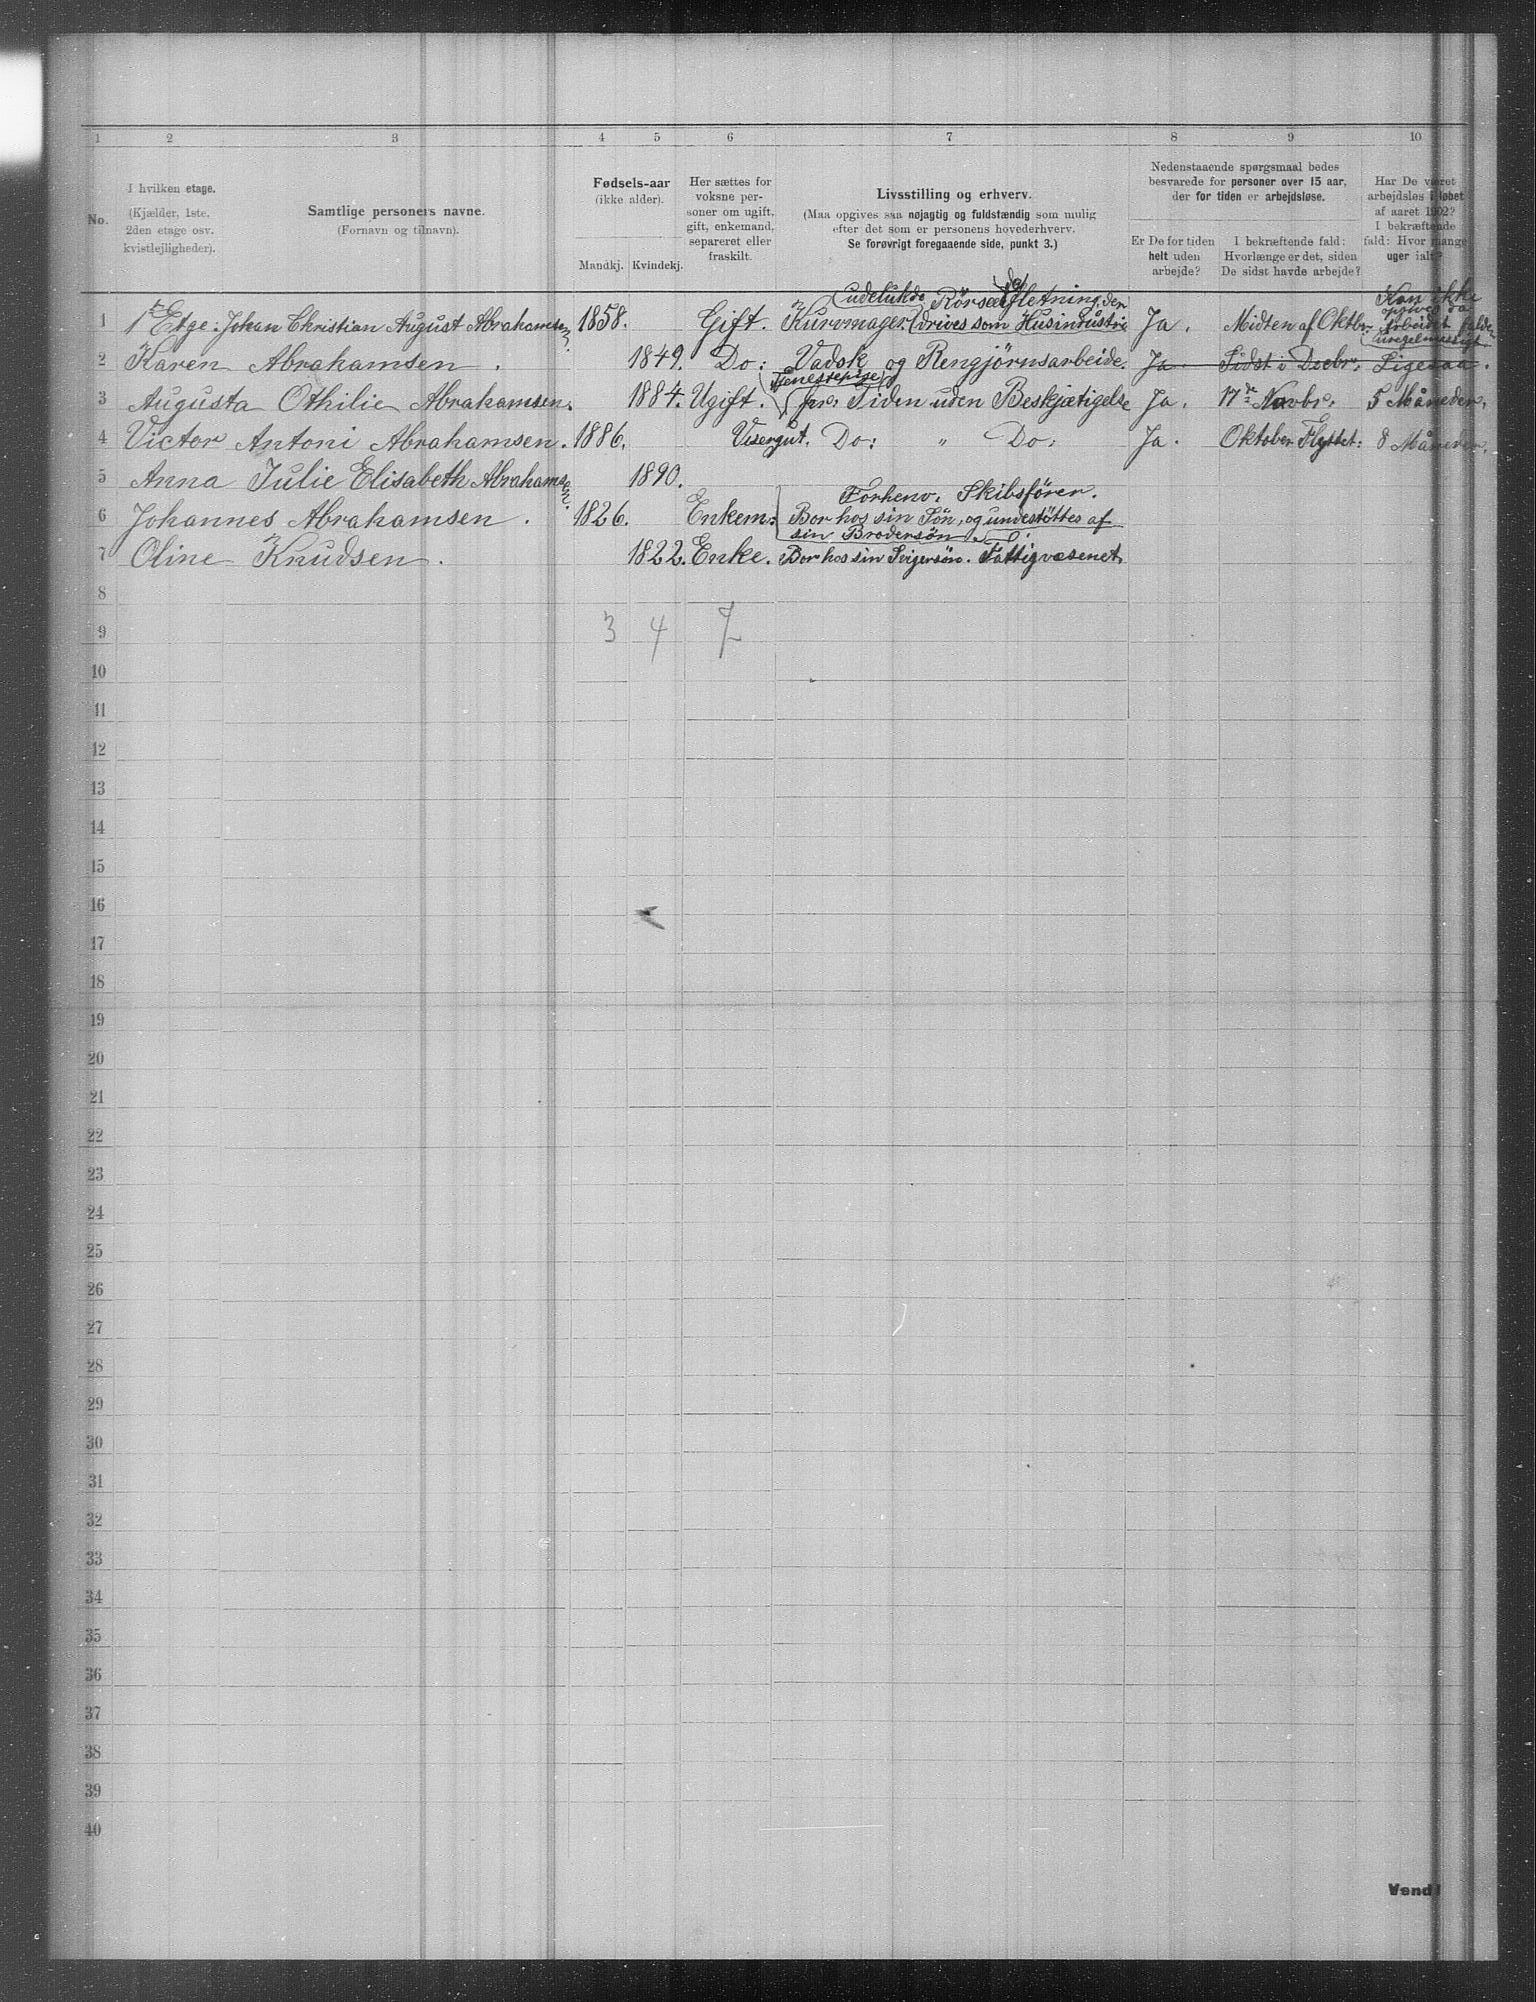 1 2 3 4 5 6 7 8 9 10
No.
I hvilken etage.
(Kjælder, 1ste,
2den etage osv.
kvistlejligheder).
Samtlige personers navne.
(Fornavn og tilnavn).
Fødsels-aar
(ikke alder).
Mandkj. Kvindekj.
Her sættes for
voksne per-
soner om ugift,
gift, enkemand,
separeret eller
fraskilt.
Livsstilling og erhverv.
(Maa opgives saa nøjagtig og fuldstændig som mulig
efter det som er personens hovederhverv.
Se forøvrigt foregaaende side, punkt 3.)
Nedenstaaende spørgsmaal bedes
besvarede for personer over 15 aar,
der for tiden er arbejdsløse.
Er De for tiden
helt uden
arbejde?
I bekræftende fald:
Hvorlænge er det, siden
De sidst havde arbejde?
Har De været
arbejdsløs i løbet
af aaret 1902?
I bekræftende
fald: Hvor mange
uger ialt?
1 1 Etge. Johan Christian August Abrahamsen 1858. Gift. Kurvmager. drives som Husindustri Ja. Midten af Oktbr. Kan ikke
2 Karen Abrahamsen. 1849. Do: Vadsk og Rengjörnsarbeide. Ja. Sidst i Dcebr. Ligesaa.
Tjenestepige
3 Augusta Othilie Abrahamsen. 1884. Ugift. før. Siden uden Beskjætigelse Ja. 17de Novbr. 5 Måneder.
4 Victor Antoni Abrahamsen. 1886. Visergut. Do: " Do: Ja. Oktober Flyttet: 8 Måneder.
5 Anna Julie Elisabeth Abrahamsen. 1890.
Forhenv. Skibsförer.
6 Johannes Abrahamsen. 1826. Enkem: Bor hos sin Sön, og understöttes af
sin Brodersön
7 Oline Knudsen. 1822. Enke. Bor hos sin Svigersön. Fattigvæsenet.
8
9 3 4 7
10
11
12
13
14
15
16
17
18
19
20
21
22
23
24
25
26
27
28
29
30
31
32
33
34
35
36
37
38
39
40
Vend!